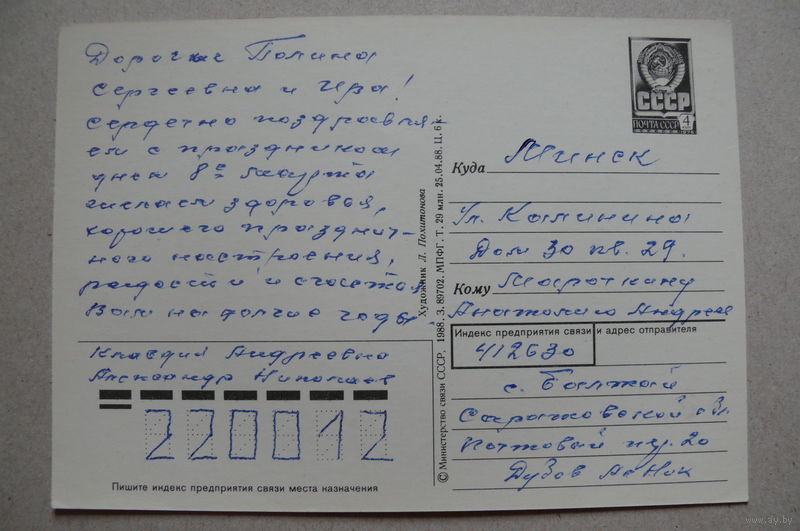 Дорогие Полина
Сергеевна и Ира!
Сердечно поздравля-
ем с праздником
днем 8е Марта
желаем здоровья,
хорошего празднич-
ного настроения,
радости и счастья
Вам на долгие годы
Клавдия Андреевна
Александр Николаев
220012
Пишите индекс предприятия связи места назначения
© Министерство связи СССР, 1988. З. 89702. МПФГ. Т. 29 млн. 25.04.88. Ц. 6 к.
Художник Л. Похитонова
СССР
ПОЧТА СССР 4
Куда Минск
ул. Калинина
Дом 30 кв. 29.
Кому Мароткину
Анатолию Андрее
Индекс предприятия связи и адрес отправителя
412630
с. Балтай
Саратовской обл.
Почтовый пер. 20
Дубов